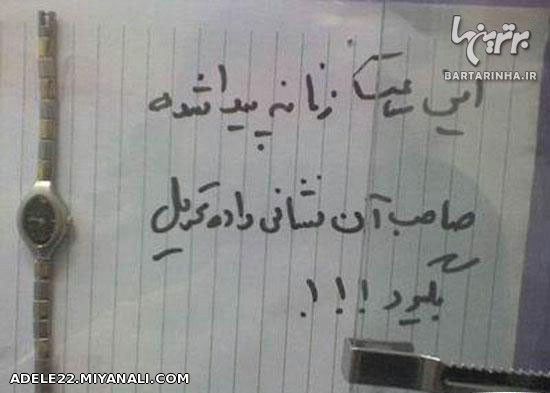 برترینها
BARTARINHA.IR
این ساعت زنانه پیدا شده
صاحب آن نشانی داده تحویل
بگیرد !!!
ADELE22.MIYANALI.COM